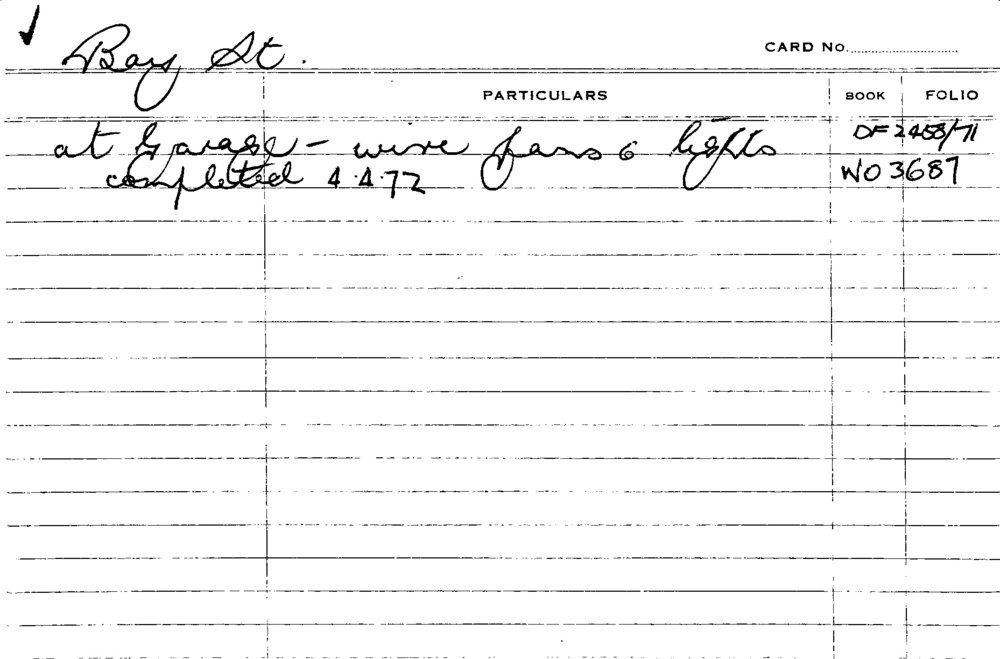 Bay St.
CARD No.
PARTICULARS BOOK FOLIO
at Garage - wire fans & lights DF 2458/71
completed 4.4.72 WO 3687